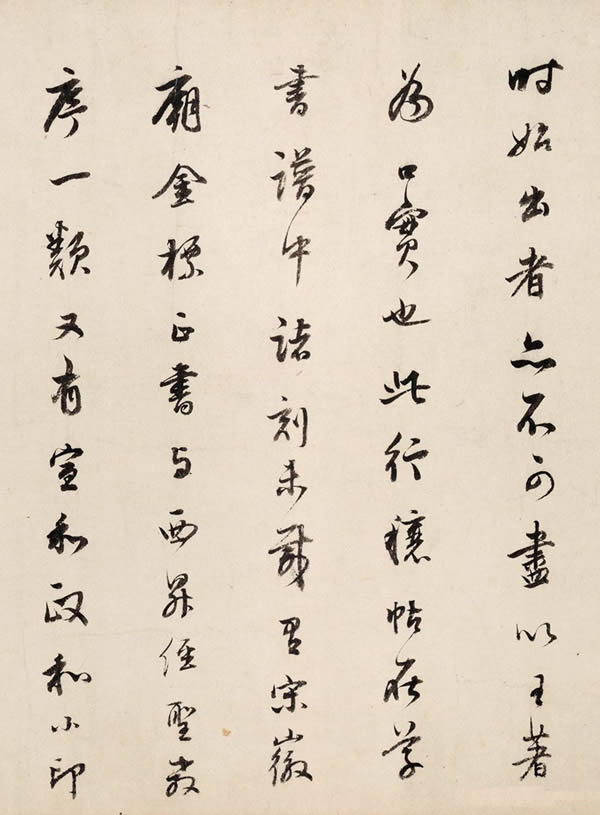 時始出者亦不可盡以王著
為口實也此行穰帖在草
書譜中諸刻未宋徽
廟金標正書與西昇經聖教
序一類又有宣和政和小印